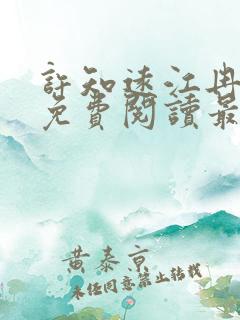 許知遠江冉
免費閱讀最
黄泰京
未经同意禁止转载